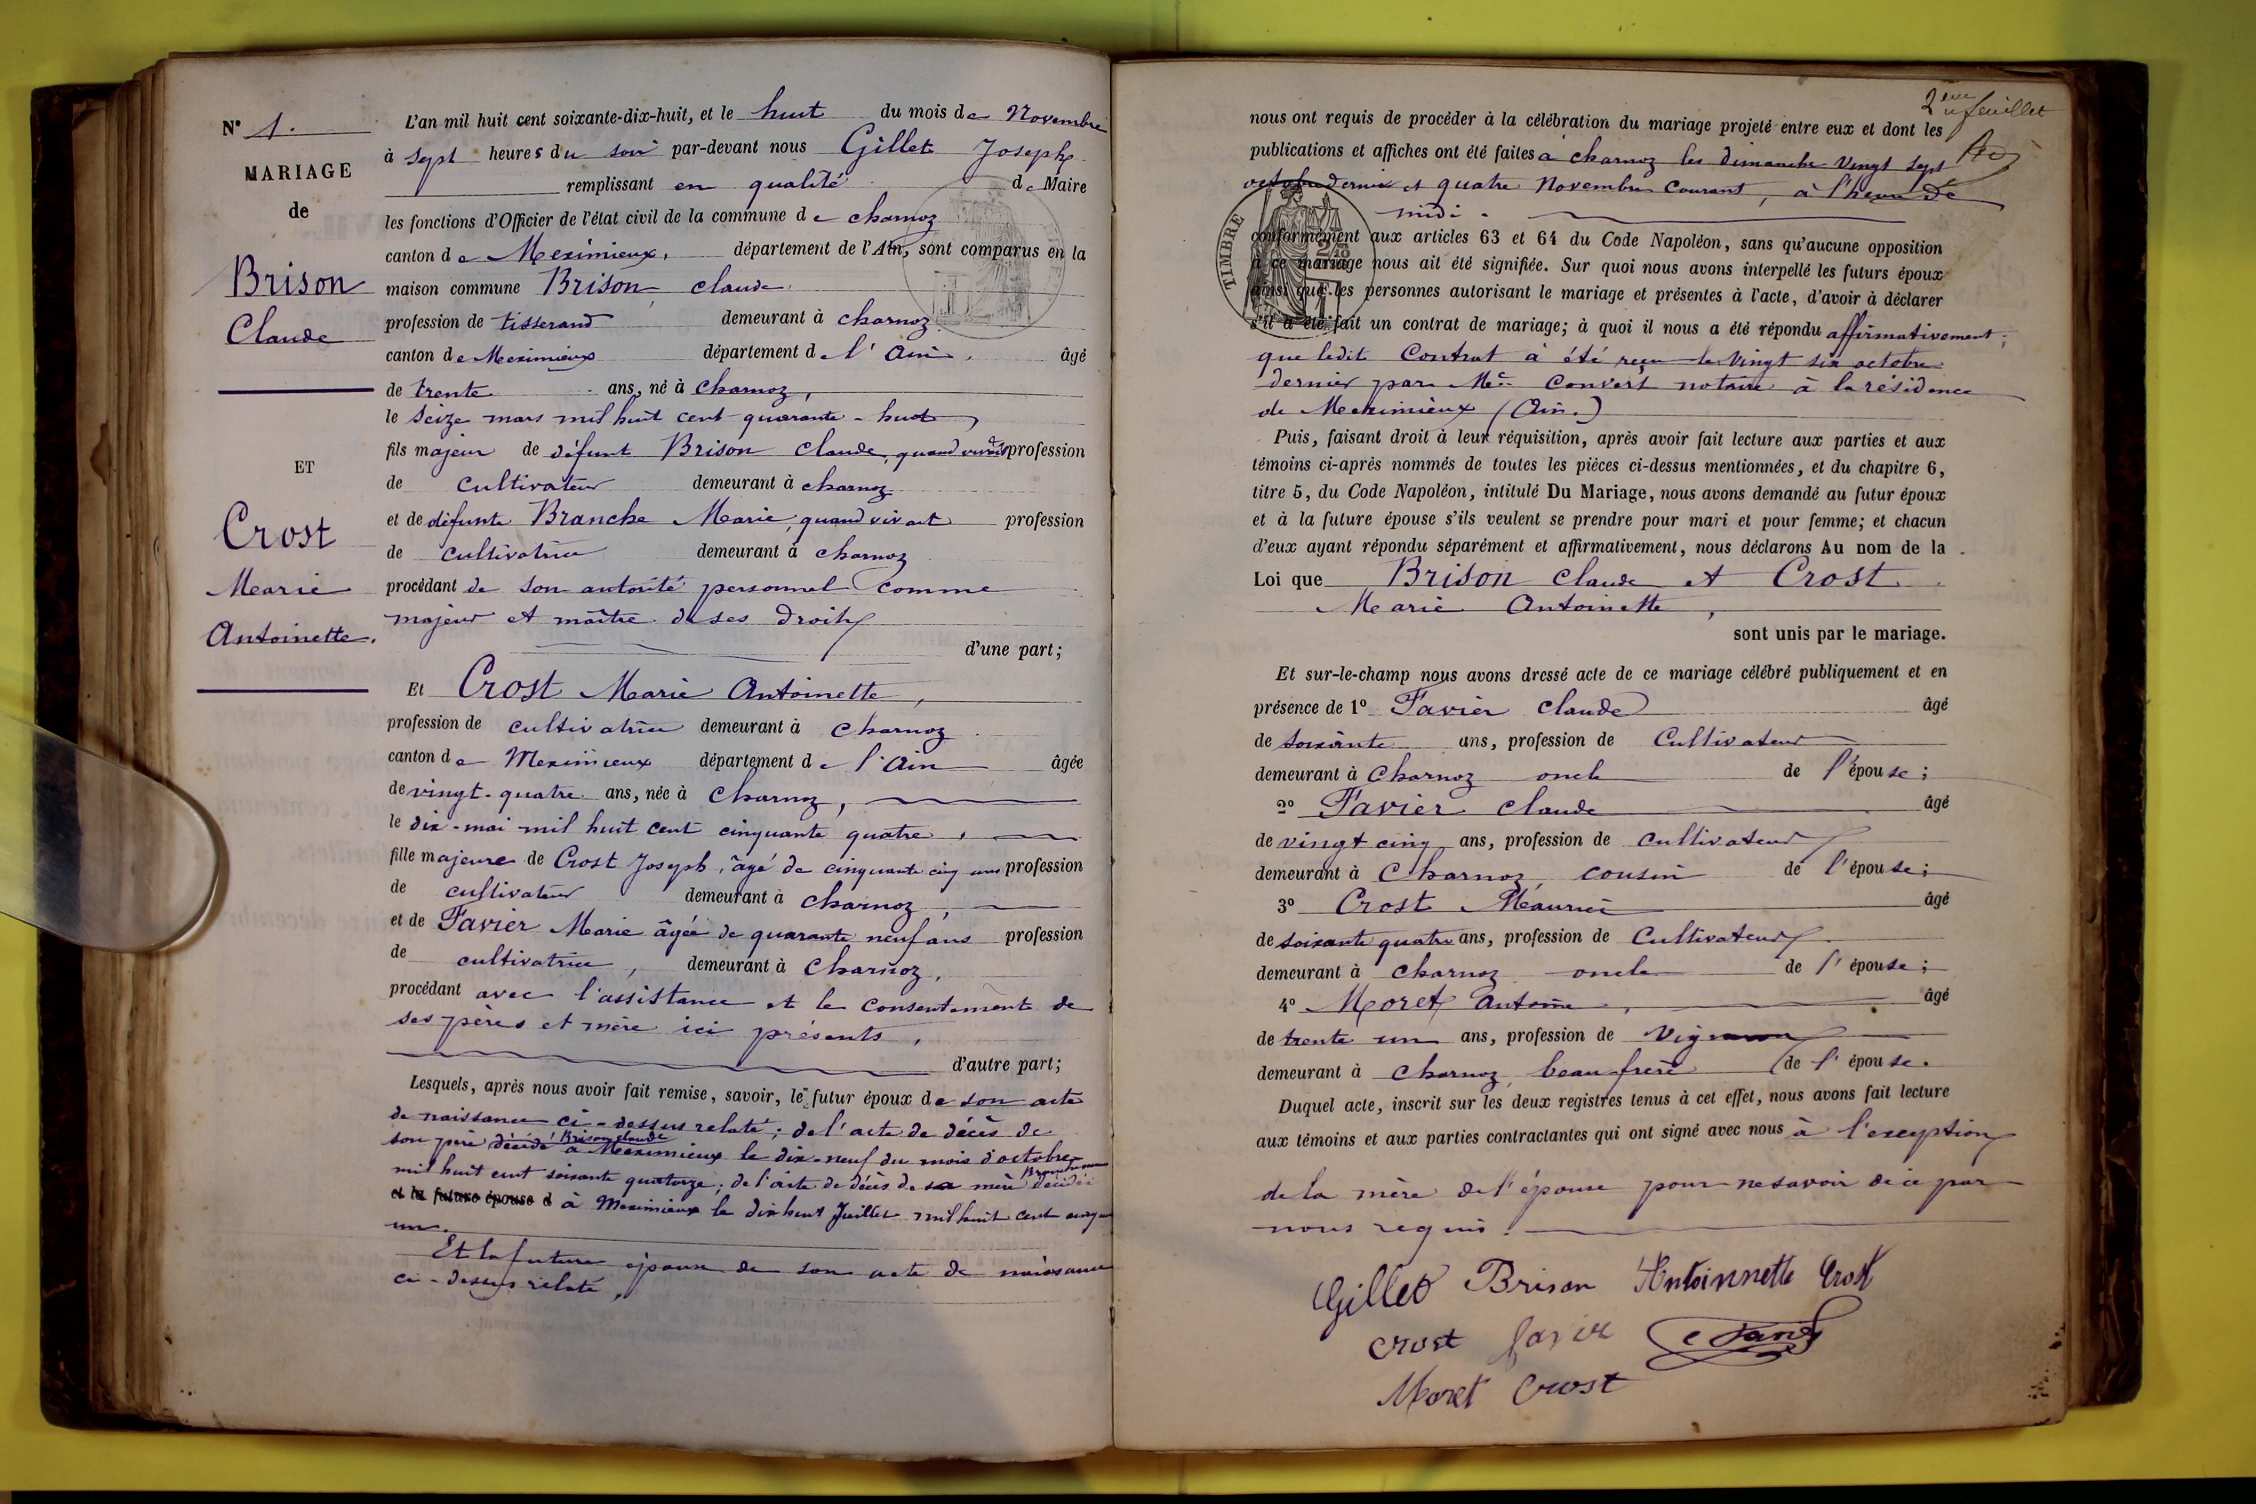 N° 1.
MARIAGE
de
Brison
Claude
ET
Crost
Marie
Antoinette.
L'an mil huit cent soixante-dix-huit, et le huit du mois de Novembre
à sept heures du soir par-devant nous Gillet Joseph
remplissant en qualité de Maire
les fonctions d'Officier de l'état civil de la commune de charnoz
canton de Meximieux, département de l'Ain, sont comparus en la
maison commune Brison claude
profession de tisserand demeurant à charnoz
canton de Meximieux département de l'Ain, âgé
de trente ans, né à charnoz,
le seize mars mil huit cent quarante-huit
fils majeur de défunt Brison claude, quand vivait profession
de cultivateur demeurant à charnoz
et de défunte Branche Marie, quand vivait profession
de cultivatrice demeurant à charnoz
procédant de son autorité personnel comme
majeur et maître de ses droits
d'une part;
Et Crost Marie Antoinette,
profession de cultivatrice demeurant à charnoz
canton de Meximieux département de l'Ain âgée
de vingt-quatre ans, née à charnoz,
le dix-mai mil huit cent cinquante quatre,
fille majeure de Crost Joseph, âgé de cinquante cinq ans profession
de cultivateur demeurant à charnoz,
et de Favier Marie âgée de quarante neuf ans profession
de cultivatrice, demeurant à charnoz,
procédant avec l'assistance et le consentement de
ses pères et mère ici présents,
d'autre part;
Lesquels, après nous avoir fait remise, savoir, le futur époux de son acte
de naissance ci-dessus relaté; de l'acte de décès de
son père Brison claude décédé à Meximieux le dix-neuf du mois d'octobre
mil huit cent soixante quatorze; de l'acte de décès de sa mère décédée
et la future épouse d à Meximieux le dix huit Juillet mil huit cent
un.
Et la future épouse de son acte de naissance
ci-dessus relaté,
2eme feuillet
nous ont requis de procéder à la célébration du mariage projeté entre eux et dont les
publications et affiches ont été faites à charnoz les dimanche vingt sept
octobre dernier et quatre Novembre courant, à l'heure de
midi.
TIMBRE
conformément aux articles 63 et 64 du Code Napoléon, sans qu'aucune opposition
à ce mariage nous ait été signifiée. Sur quoi nous avons interpellé les futurs époux
ainsi que les personnes autorisant le mariage et présentes à l'acte, d'avoir à déclarer
s'il a été fait un contrat de mariage; à quoi il nous a été répondu affirmativement;
que ledit Contrat à été reçu le vingt six octobre
dernier par Me Convert notaire à la résidence
de Meximieux (Ain.)
Puis, faisant droit à leur réquisition, après avoir fait lecture aux parties et aux
témoins ci-après nommés de toutes les pièces ci-dessus mentionnées, et du chapitre 6,
titre 5, du Code Napoléon, intitulé Du Mariage, nous avons demandé au futur époux
et à la future épouse s'ils veulent se prendre pour mari et pour femme; et chacun
d'eux ayant répondu séparément et affirmativement, nous déclarons Au nom de la
Loi que Brison claude et Crost
Marie Antoinette,
sont unis par le mariage.
Et sur-le-champ nous avons dressé acte de ce mariage célébré publiquement et en
présence de 1° Favier claude âgé
de soixante ans, profession de Cultivateur
demeurant à charnoz oncle de l'épouse;
2° Favier claude âgé
de vingt cinq ans, profession de cultivateur
demeurant à Charnoz, cousin de l'épouse;
3° Crost Maurice âgé
de soixante quatre ans, profession de Cultivateur
demeurant à charnoz oncle de l'épouse;
4° Moret antoine, âgé
de trente un ans, profession de vigneron
demeurant à charnoz, beau frère de l'épouse.
Duquel acte, inscrit sur les deux registres tenus à cet effet, nous avons fait lecture
aux témoins et aux parties contractantes qui ont signé avec nous à l'exception
de la mère de l'épouse pour ne savoir de ce par
nous requis.
Gillet Brison Antoinnette Crost
crost favier
Moret Crost